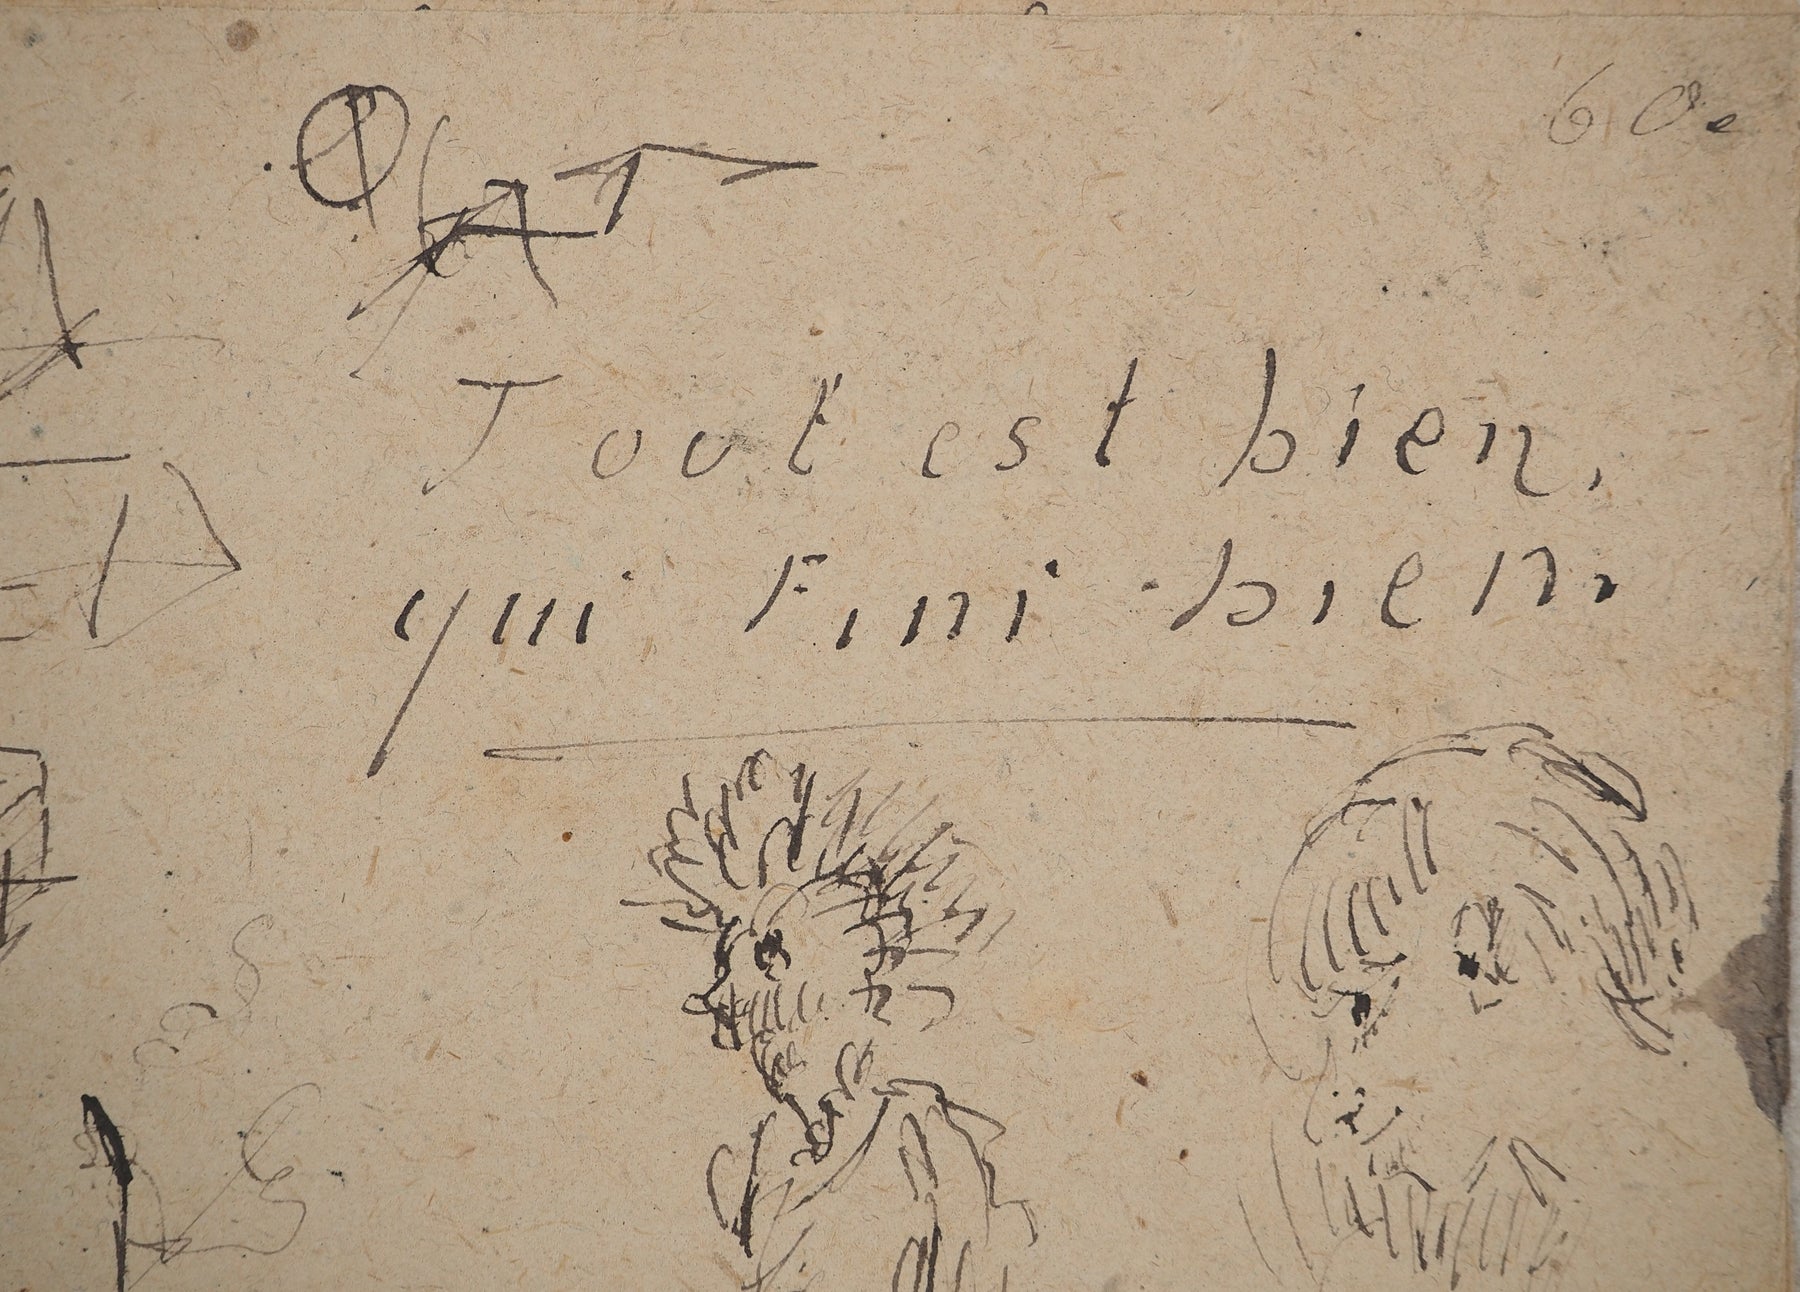 60.
Tout est bien,
qui Fini bien.